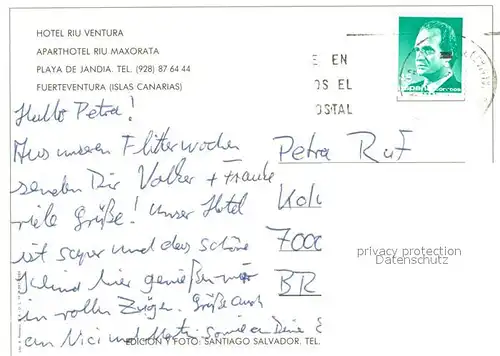 HOTEL RIU VENTURA
APARTHOTEL RIU MAXORATA
PLAYA DE JANDIA. TEL. (928) 87 64 44
FUERTEVENTURA (ISLAS CANARIAS)
E EN
OS EL
OSTAL
España correos
Hallo Petra!
Aus unseren Flitterwochen
senden Dir Volker + Frauke
viele Grüße! Unser Hotel
ist super und das schöne
hier genießen wir
in vollen Zügen. Grüße auch
an Nici und sowie an Deine E
Petra Ruf
Kol
7000
BR
privacy protection
Datenschutz
EDICION Y FOTO: SANTIAGO SALVADOR. TEL.